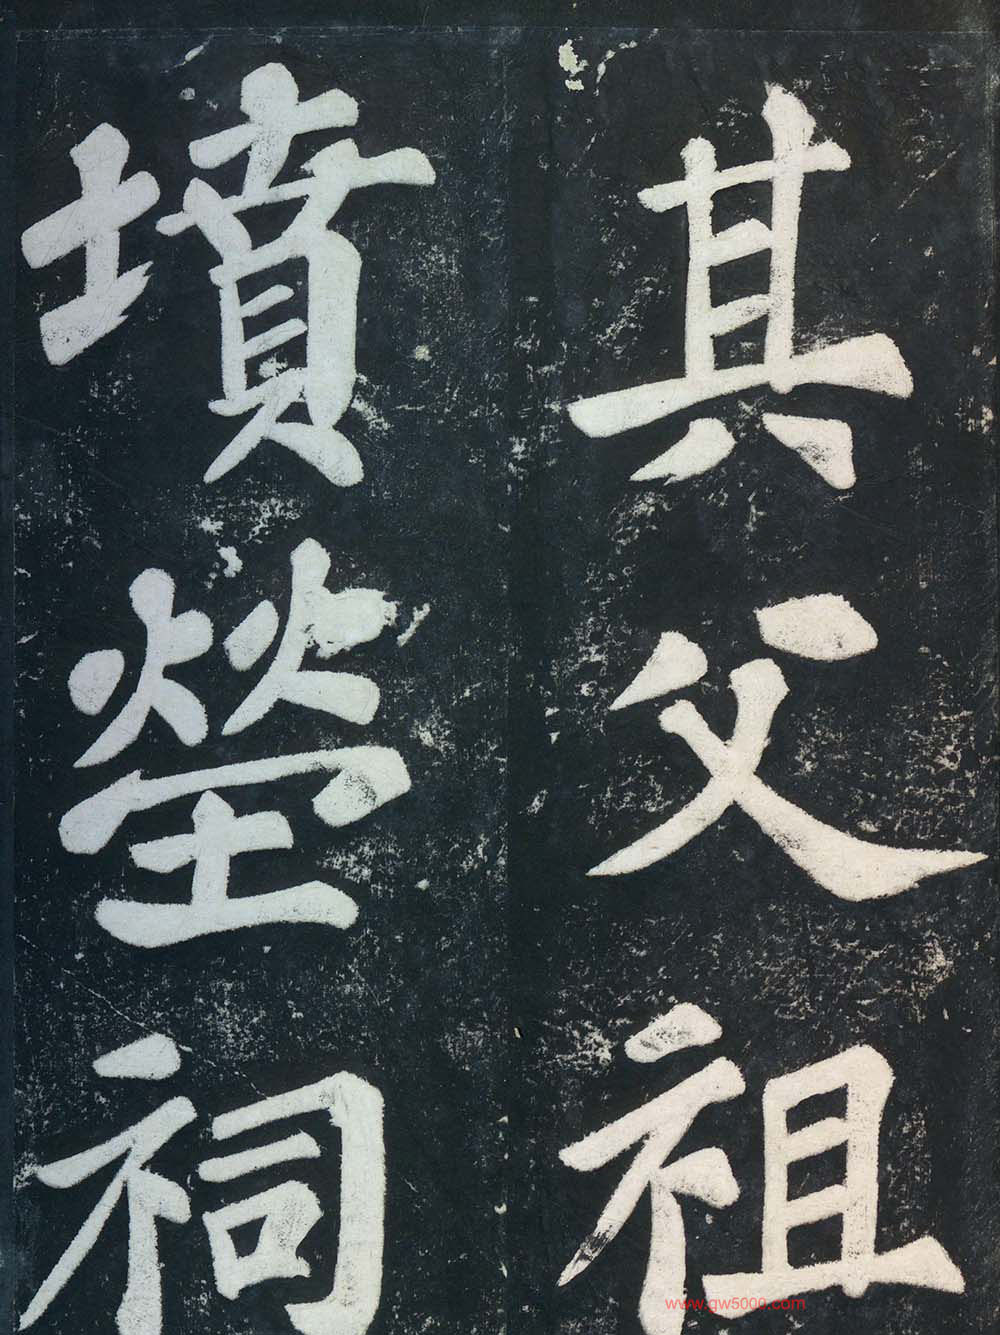 其父祖
墳塋祠
www.gw5000.com